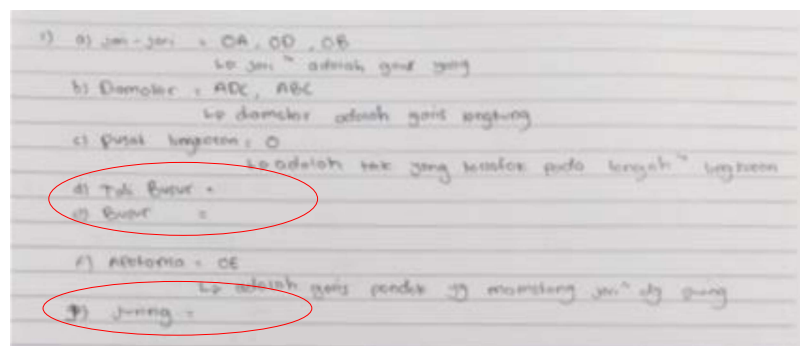 1) a) Jari-jari = OA, OD, OB
↳ jari" adalah garis yang
b) Diameter = ADC, ABC
↳ diameter adalah garis
c) Pusat lingkaran = O
↳ adalah titik yang terletak pada tengah" lingkaran
d) Tali Busur =
e) Busur =
f) Apotema = OE
↳ adalah garis pendek yg jari" dg
g) Juring =